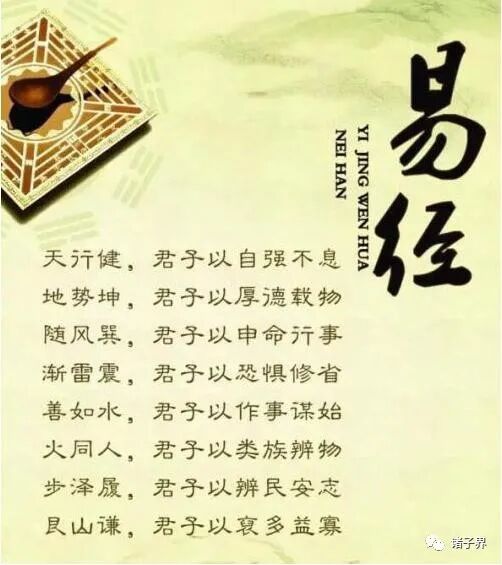 易经
YI JING WEN HUA
NEI HAN
天行健，君子以自强不息
地势坤，君子以厚德载物
随风巽，君子以申命行事
渐雷震，君子以恐惧修省
善如水，君子以作事谋始
火同人，君子以类族辨物
步泽履，君子以辨民安志
艮山谦，君子以裒多益寡
诸子界